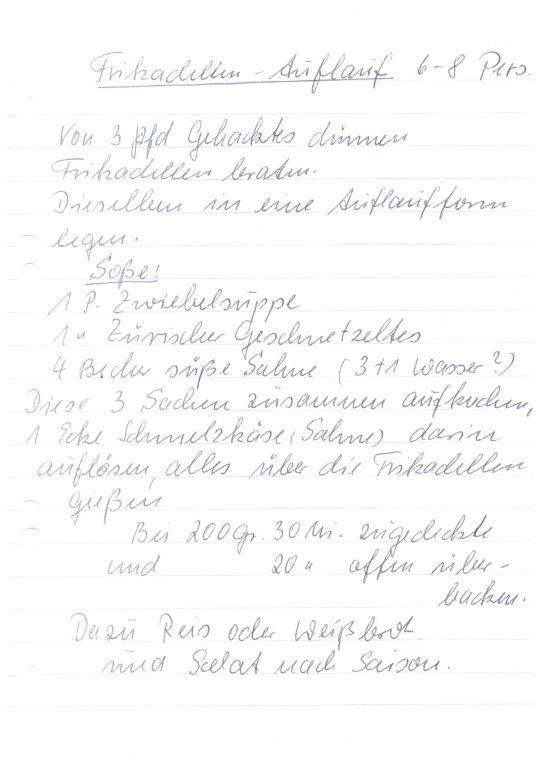 Frikadellen-Auflauf 6-8 Pers.
Von 3 Pfd Gehacktes dünnen
Frikadellen braten.
Diesellben in eine Auflaufform
legen.
Soße!
1 P. Zwiebelsuppe
1 " Züricher Geschnetzeltes
4 Becher süße Sahne (3+1 Wasser?)
Diese 3 Sachen zusammen aufkochen,
1 Ecke Schmelzkäse (Sahne) darin
auflösen, alles über die Frikadellen
gießen
Bei 200Gr. 30 Mi. zugedeckte
und 20 " offen über-
backen.
Dazu Reis oder Weißbrot
und Salat nach Saison.